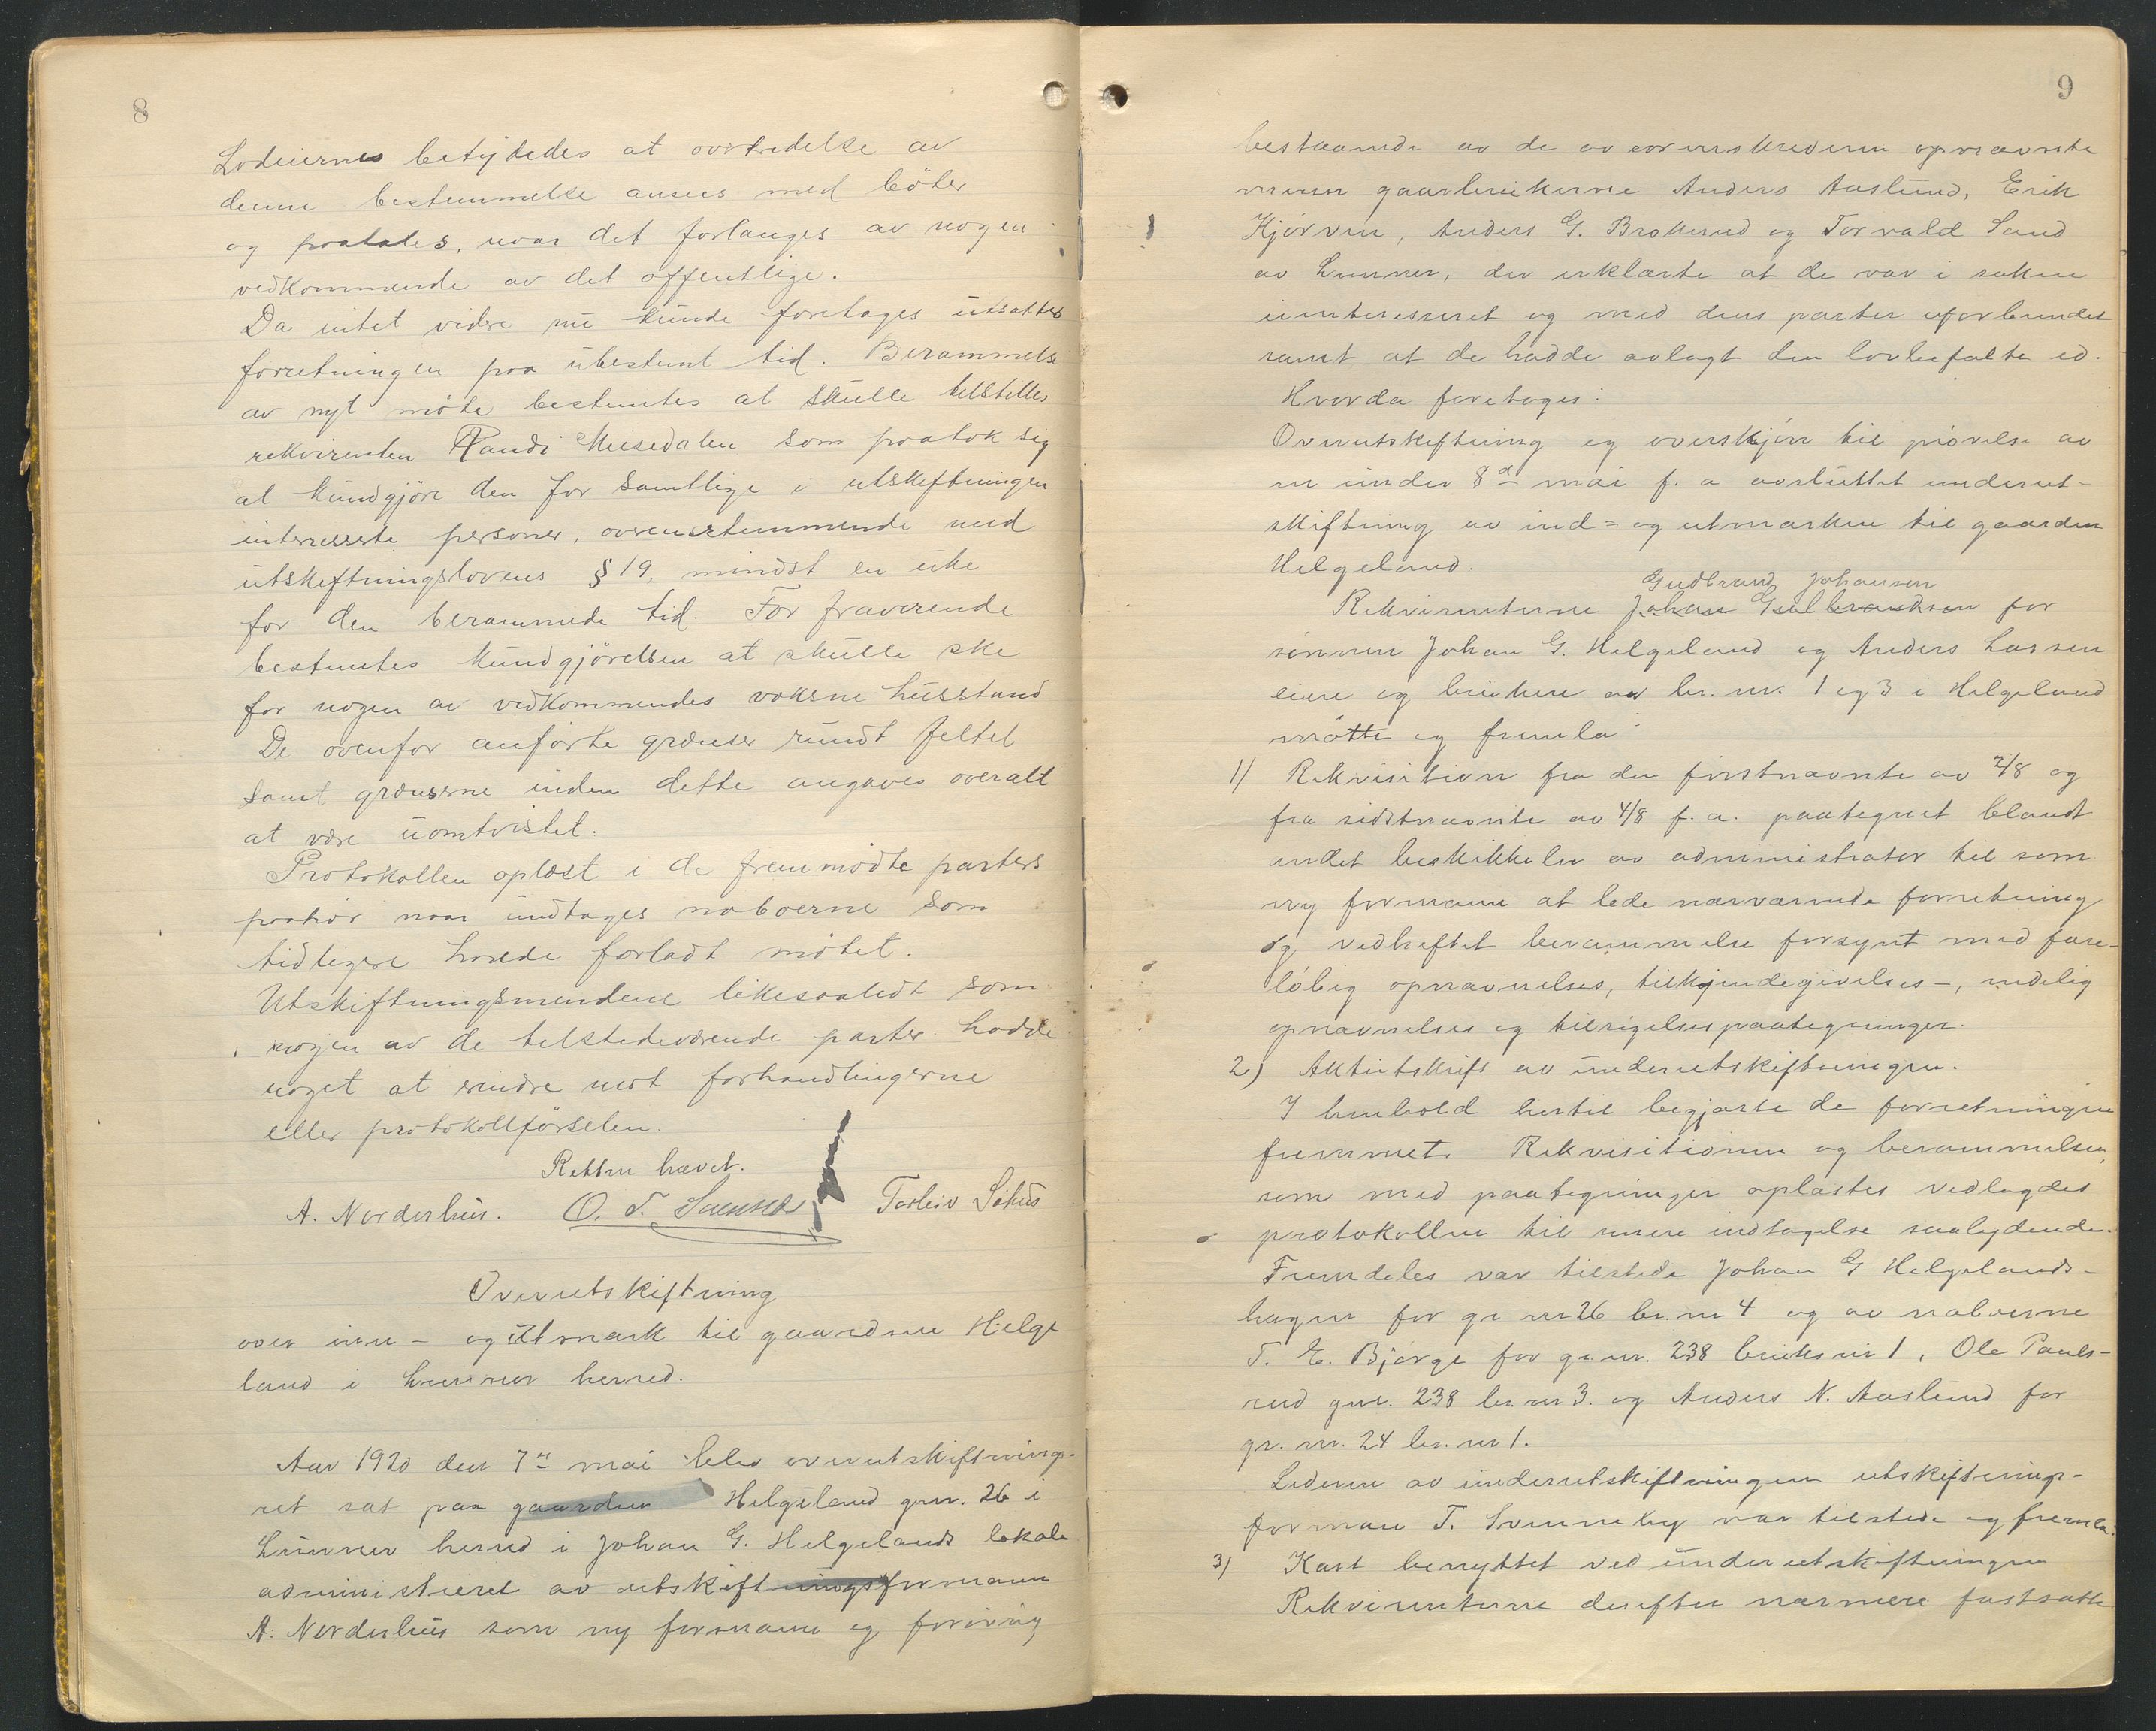 8
Lodeiernes betydedes at overtrædelse av
denne bestemmelse ansees med böter
og paatales, naar det forlanges av nogen
vedkommende av det offentlige.
Da intet videre nu kunde foretages utsattes
forretningen paa ubestemt tid. Berammelse
av nyt möte bestemtes at skulle tilstilles
rekvirenten Randi som paatok sig
at kundgjöre den for samtlige i utskiftningen
interesserte personer, overensstemmende med
utskiftningslovens § 19, mindst en uke
for den berammede tid. For fraværende
bestemtes kundgjörelsen at skulle ske
for nogen av vedkommendes voksne husstand
De ovenfor anförte grænser rundt feltet
samt grænserne inden dette angaves overalt
at være uomtvistet.
Protokollen oplæst i de fremmödte parters
paahör naar undtages naboerne som
tidligere havde forladt mötet.
Utskiftningsmendene likesaalidt som
nogen av de tilstedeværende parter hadde
noget at erindre mot forhandlingerne
eller protokollförselen.
Retten hævet.
A. Norderhus. O. T. Torleiv
Overutskiftning
over inn- og utmark til gaardene Helge
land i Lunner herred.
Aar 1920 den 7de mai blev overutskiftnings-
ret sat paa gaarden Helgeland gnr. 26 i
Lunner herred i Johan G. Helgelands lokale
administreret av utskiftningsformann
A. Norderhus som ny formann og forövrig
9
bestaaende av de av lensmanden opnævnte
menn gaardbrukerne Anders Aaslund, Erik
Kjörven, Anders G. Brokerud og Torvald Sand
av Lunner, der erklærte at de var i saken
uinteresseret og med dens parter uforbundet
samt at de hadde avlagt den lovbefalte ed.
Hvorda foretoges:
Overutskiftning og overskjön til prövelse av
en under 8de mai f. a avsluttet underut-
skiftning av ind- og utmarken til gaarden
Helgeland.
Gudbrand Johansen
Rekvirenterne Johan Gudbrandsen for
sönnen Johan G. Helgeland og Anders Larsen
eiere og brukere av br. nr. 1 og 3 i Helgeland
mötte og fremla:
1) Rekvisition fra den förstnævnte av 2/8 og
fra sidstnævnte av 4/8 f. a. paategnet blandt
andet beskikkelse av administrator til som
ny formann at lede nærværende forretning
og vedheftet berammelse forsynt med fore-
löbig opnævnelses, tilkjendegivelses-, endelig
opnævnelses og tilsigelsespaategninger.
2) Aktutskrift av underutskiftningen.
I henhold hertil begjærte de forretningen
fremmet. Rekvisitionen og berammelsen,
som med paategninger oplæstes vedlagdes
protokollen til senere indtagelse saalydende.
Fremdeles var tilstede Johan G Helgelands-
hagen for gr nr 26 br. nr 4 og av naboerne
T. E. Bjørge for gr. nr. 238 bruks nr 1, Ole Pauls-
rud gnr. 238 br. nr 3. og Anders N. Aaslund for
gr. nr. 24 br. nr 1.
Lederen av underutskiftningen utskiftnings-
formann T. Svinneby var tilstede og fremla:
3) Kart benyttet ved underutskiftningen
Rekvirenterne derefter nærmere fastsatte